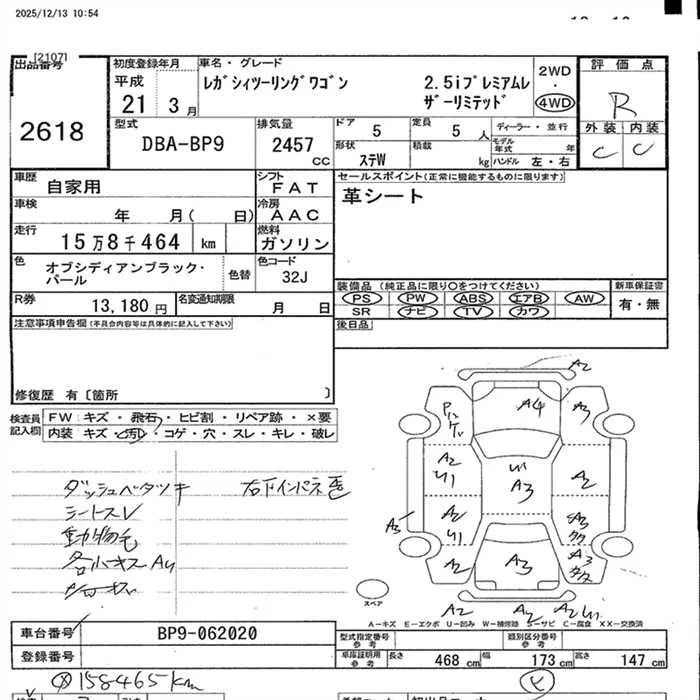 2025/12/13 10:54
[2107]
出品番号
2618
初度登録年月
平成
21 3月
車名・グレード
レガシィツーリングワゴン 2.5iプレミアムレザーリミテッド
2WD
4WD
評価点
R
外装 内装
C C
型式
DBA-BP9
排気量
2457
CC
ドア 5
定員 5 人
ディーラー・並行
形状 ステW
積載 kg
モデル年式 年
ハンドル 左・右
車歴 自家用
シフト FAT
セールスポイント(正常に機能するものに限ります)
革シート
車検 年 月( 日)
冷房 AAC
走行 15万8千464 km
燃料 ガソリン
色 オブシディアンブラック・パール
色替
色コード 32J
装備品 (純正品に限り〇をつけてください)
新車保証書
PS PW ABS エアB AW
有・無
SR ナビ TV カワ
R券 13,180 円
名変通知期限 月 日
後日品
注意事項申告欄(不具合内容等は具体的に記入して下さい)
修復歴 有〔箇所 〕
検査員記入欄
FW キズ・飛石・ヒビ割・リペア跡・×要
内装 キズ・汚レ・コゲ・穴・スレ・キレ・破レ
ダッシュベタツキ
シートスレ
動物毛
A2
A4
A3
A2
U1
U1
A3
A2
A2
U1
A3
A3
A3
A2
A3
A2
A2
A2 U1
スペア
A-キズ E-エクボ U-凹み W-補修跡 S-サビ C-腐食 XX-交換済
車台番号 BP9-062020
型式指定番号 参考
類別区分番号 参考
登録番号
車庫証明用 参考
長さ 468 cm
幅 173 cm
高さ 147 cm
158465km